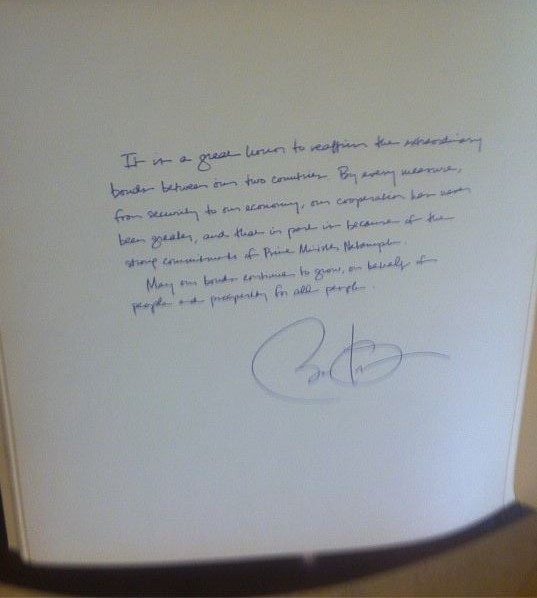 It is a great honor to reaffirm the extraordinary
bonds between our two countries. By every measure,
from security to our economy, our cooperation has never
been greater, and that in part is because of the
strong commitments of Prime Minister Netanyahu.
May our bonds continue to grow, on behalf of
and prosperity for all people.